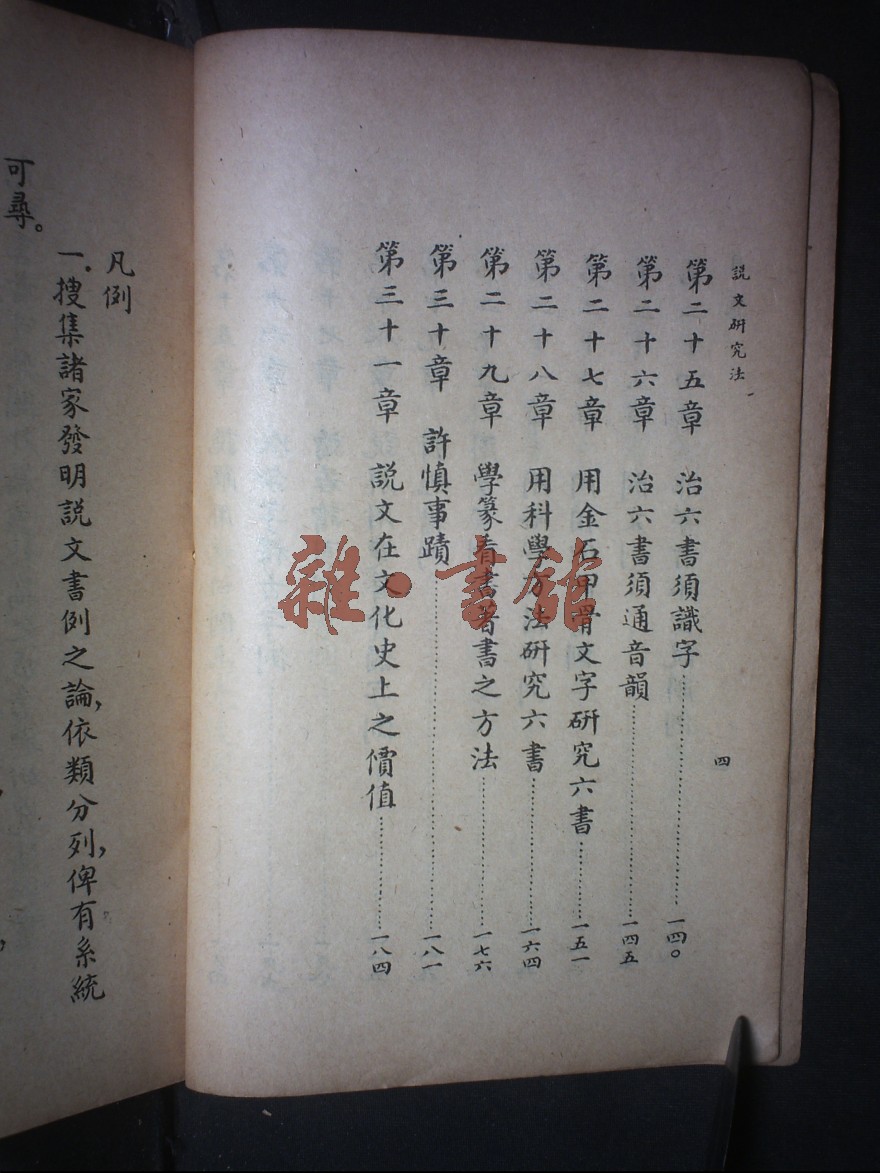 說文研究法
四
第二十五章 治六書須識字……一四〇
第二十六章 治六書須通音韻……一四五
第二十七章 用金石甲骨文字研究六書……一五一
第二十八章 用科學方法研究六書……一六四
第二十九章 學篆看書著書之方法……一七六
第三十章 許慎事蹟……一八一
第三十一章 說文在文化史上之價值……一八四
凡例
一.搜集諸家發明說文書例之論,依類分列,俾有系統
可尋。
雜·書館